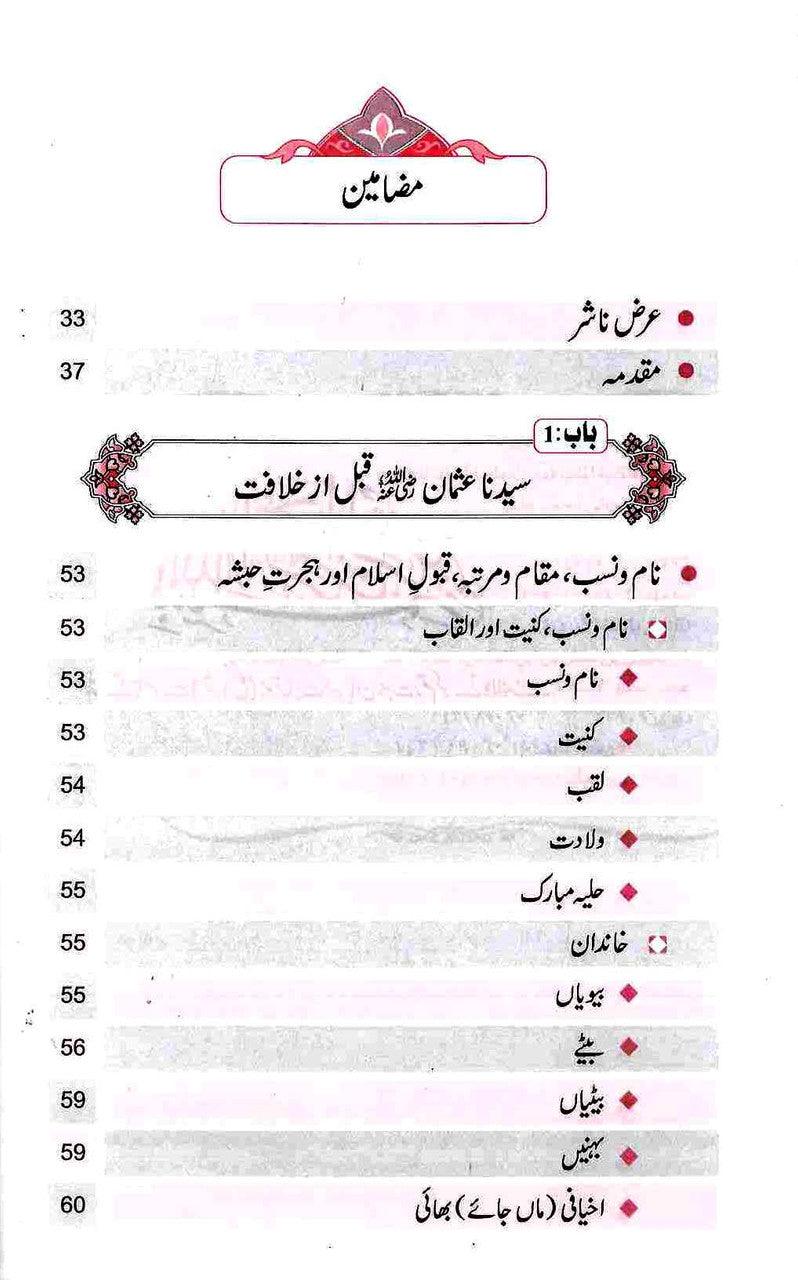 مضامین
عرض ناشر 33
مقدمہ 37
باب:1
سیدنا عثمان رضی اللہ عنہ قبل از خلافت
نام ونسب، مقام ومرتبہ، قبولِ اسلام اور ہجرتِ حبشہ 53
نام ونسب، کنیت اور القاب 53
نام ونسب 53
کنیت 53
لقب 54
ولادت 54
حلیہ مبارک 55
خاندان 55
بیویاں 55
بیٹے 56
بیٹیاں 59
بہنیں 59
اخیافی (ماں جائے) بھائی 60